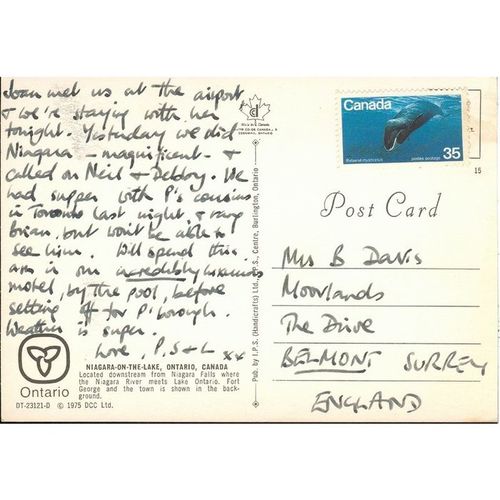 Joan met us at the airport
& we're staying with her
tonight. Yesterday we did
Niagara - magnificent - &
called on Neil & Debby. We
had supper with P's cousins
in Toronto last night, & rang
Brian, but won't be able to
see him. Will spend this
am in our incredibly luxurious
motel, by the pool, before
setting off for P'borough.
Weather is super.
Love, P, S & L xx
Ontario
NIAGARA-ON-THE-LAKE, ONTARIO, CANADA
Located downstream from Niagara Falls where
the Niagara River meets Lake Ontario. Fort
George and the town is shown in the back-
ground.
DT-23121-D © 1975 DCC Ltd.
Pub. by I.P.S. (Handicrafts) Ltd., I.P.S., Centre, Burlington, Ontario
Made in Canada
Canada
35
postes postage
15
Post Card
Mrs B Davis
Moorlands
The Drive
BELMONT SURREY
ENGLAND